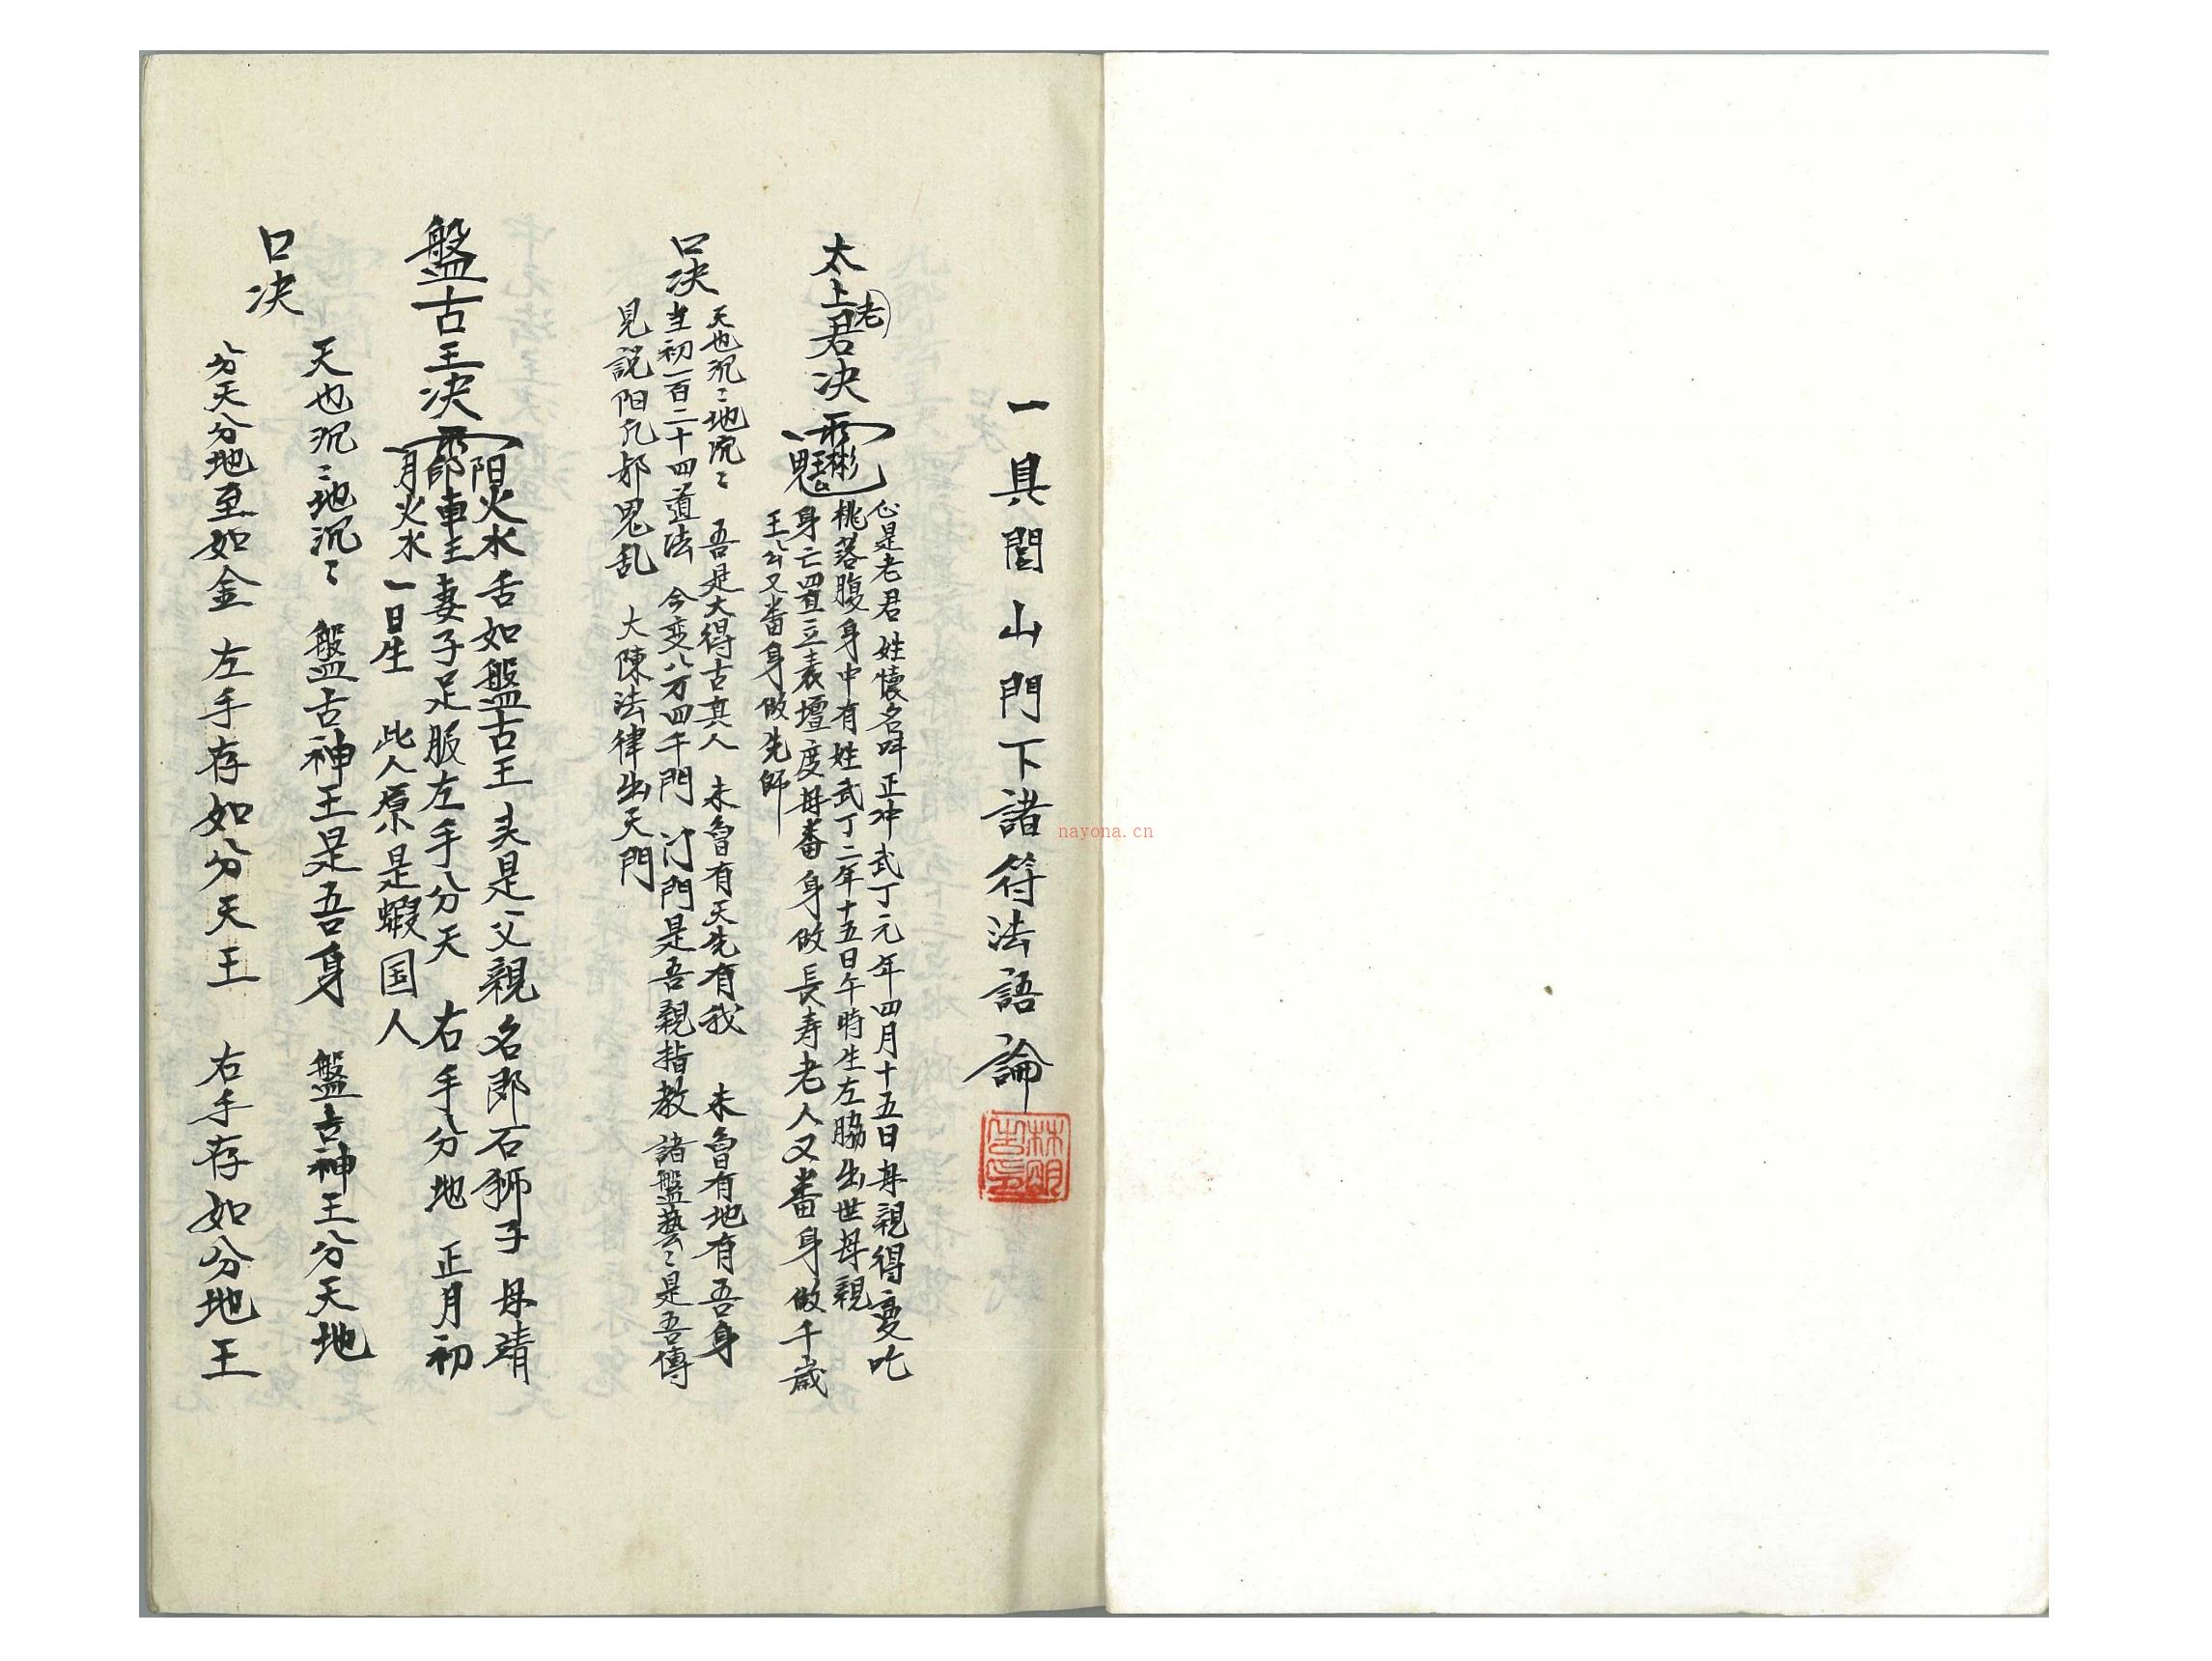 一具閭山門下諸符法語論
太上老君決
心是老君 姓懷名呌正冲 武丁元年四月十五日母親得夢吃
桃落腹身中有姓武丁二年十五日午時生左脇出世母親
身亡四置立表壇度母番身做長寿老人又番身做千歲
王公又番身做先師
口决
天也沉〻地沉〻 吾是大得古真人 未曾有天先有我 未曾有地有吾身
当初一百二十四道法 今変八万四千門 门門是吾親指教 諸盤藝〻是吾傳
見説阳凡邪鬼乱 大陳法律出天門
盤古王决
阳火水 舌如盤古王 夫是父親 名郎石獅子 母靖
車王妻子足服左手分天 右手分地 正月初
月火水 一日生 此人原是蝦国人
口决
天也沉〻地沉〻 盤古神王是吾身 盤古神王分天地
分天分地至如金 左手存如分天王 右手存如分地王
nayona.cn